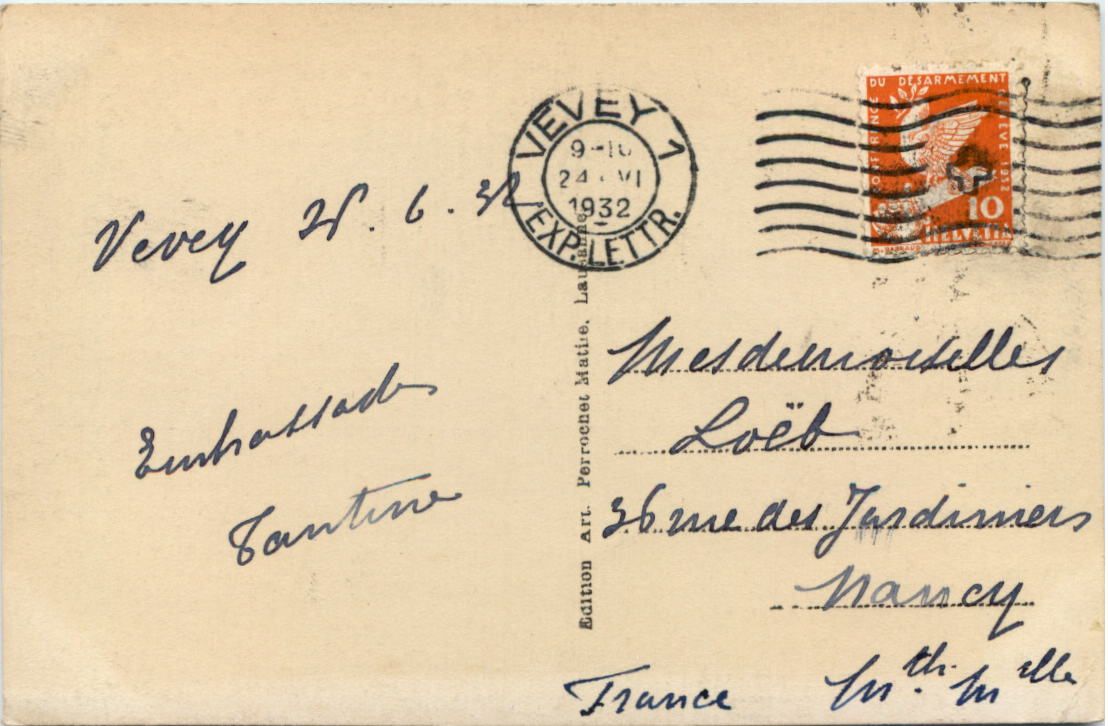 VEVEY 1
9-10
24 VI
1932
EXP. LETTR.
CONFERENCE DU DÉSARMEMENT GENÈVE 1932
10
HELVETIA
Vevey 6.32
Embrassades
Tantine
Edition Art. Perrochet Matile, Lausanne
Mesdemoiselles
Loëb
36 rue des Jardiniers
Nancy
France Mthe. Melle